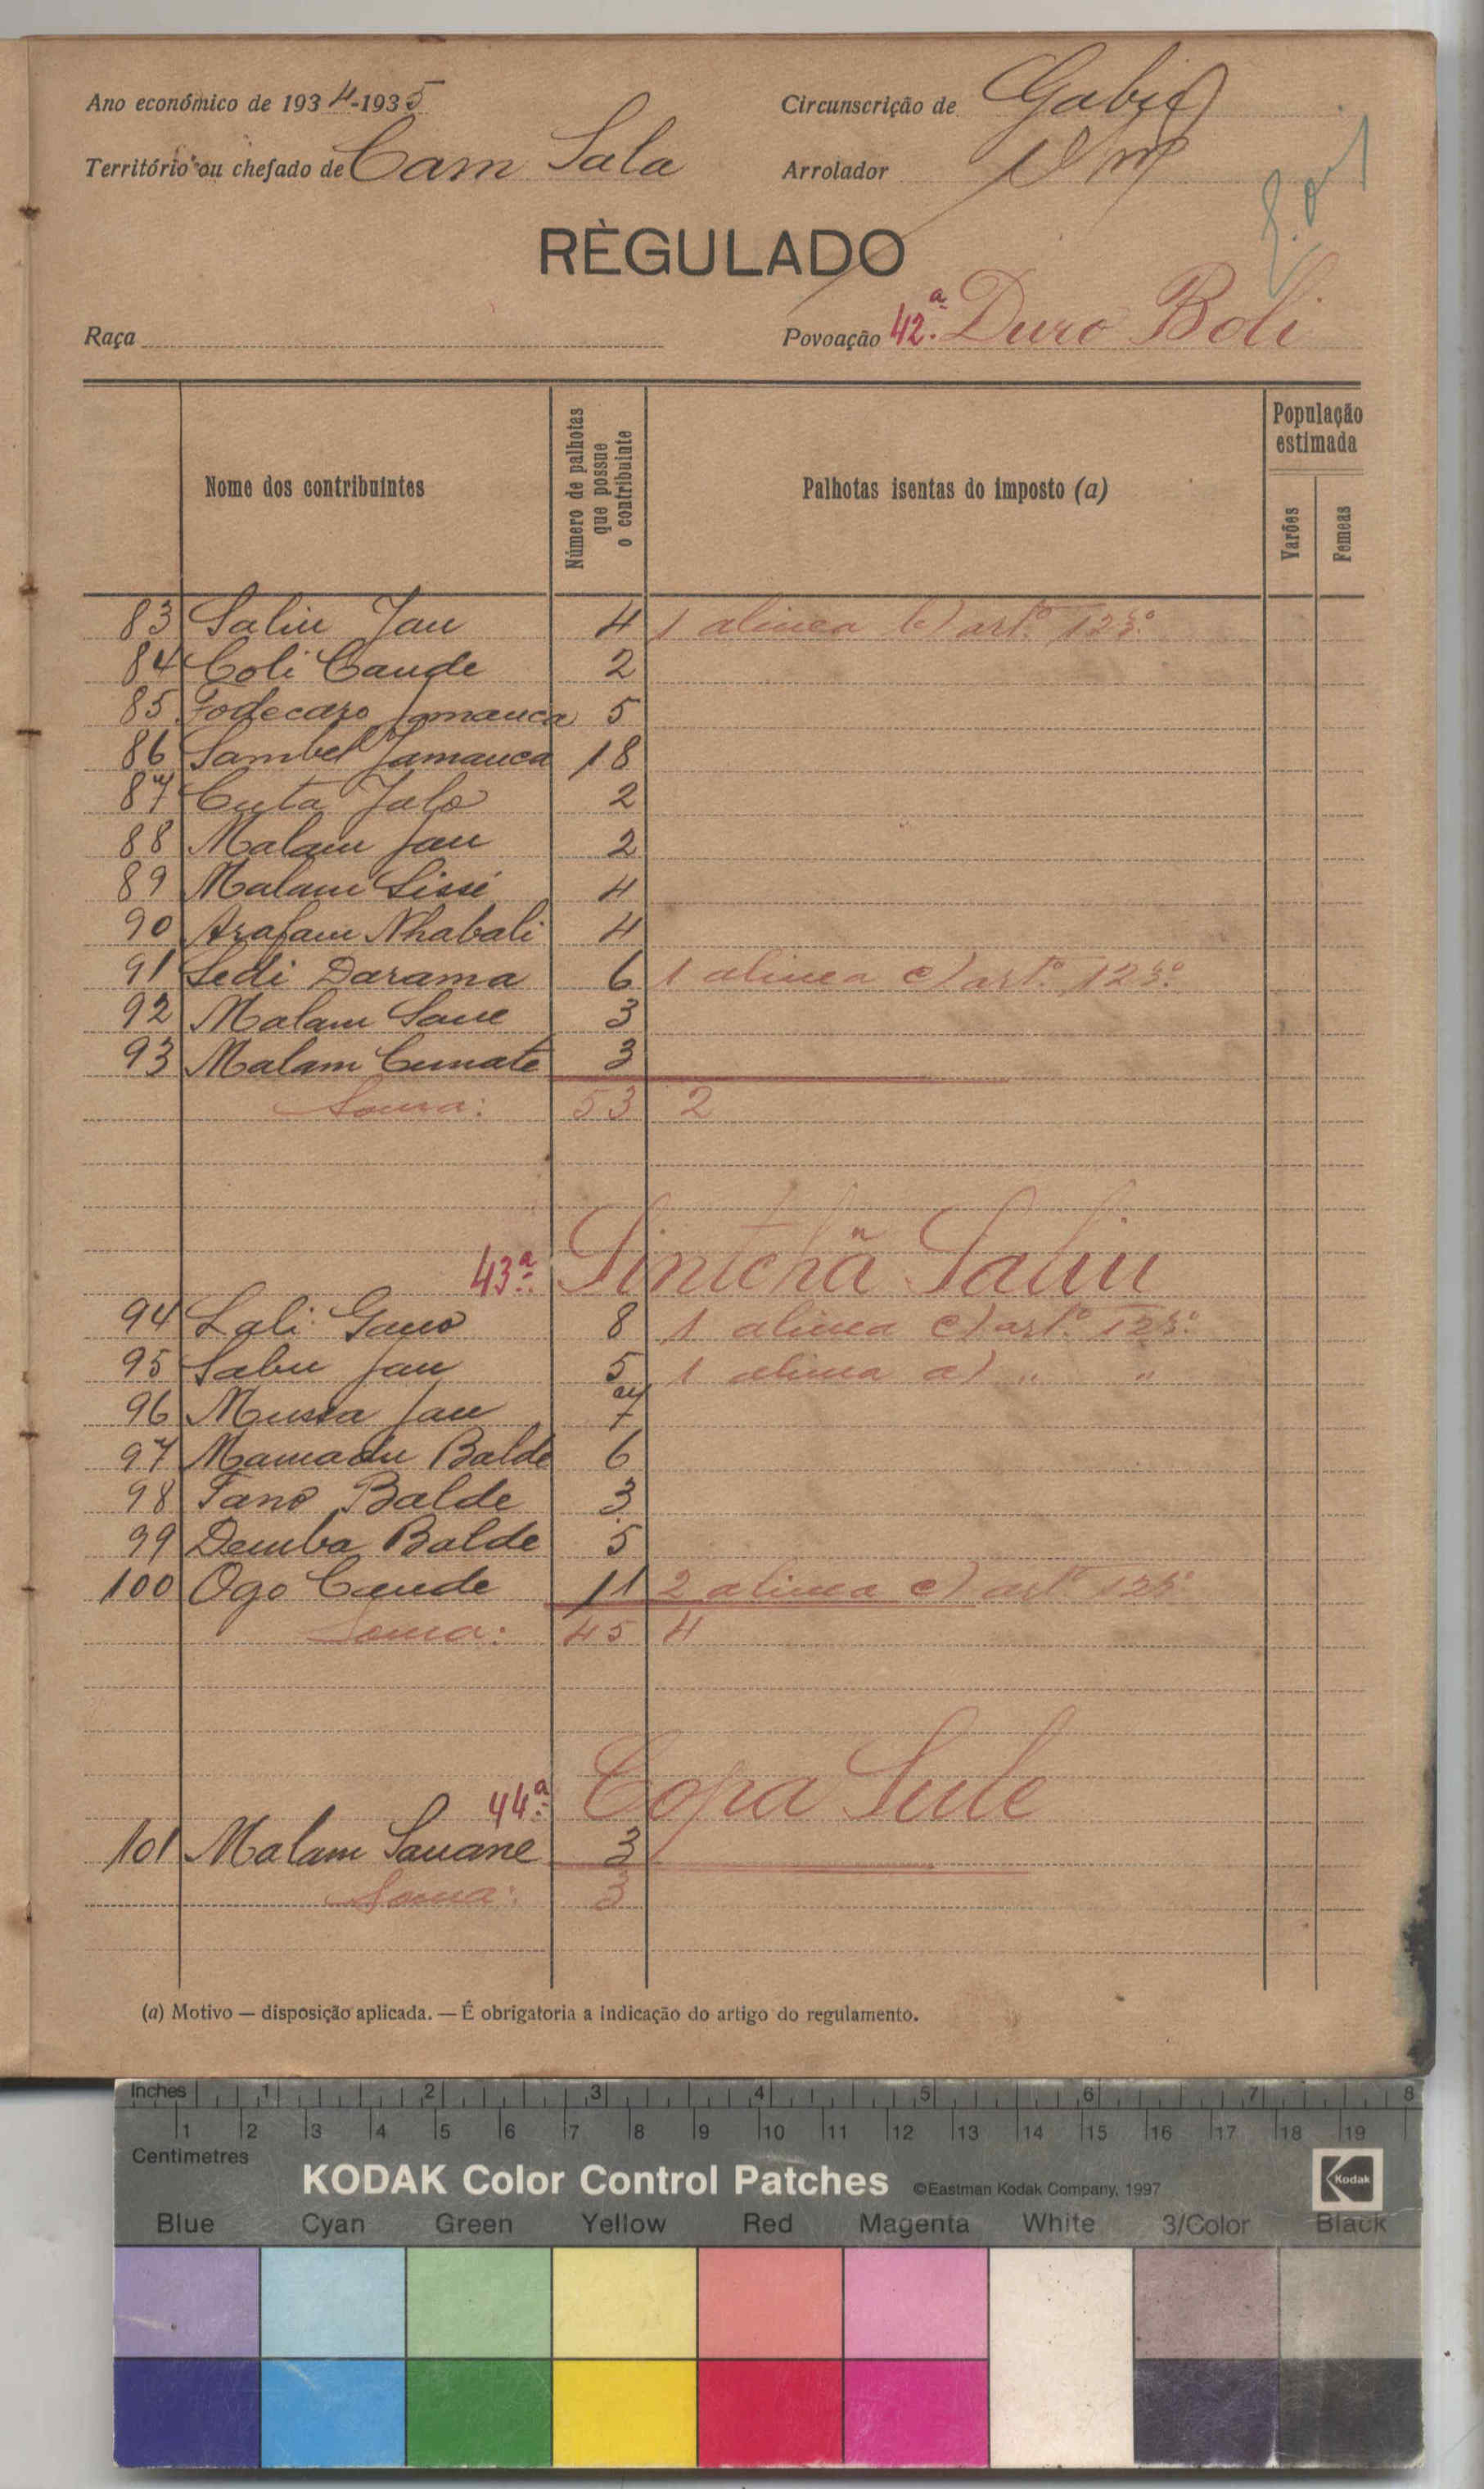 Ano económico de 1934-1935
Circunscrição de Gabú
Território ou chefado de Cam Sala
Arrolador
RÈGULADO
Raça
Povoação 42.ª Duro Boli
Nome dos contribuintes
Número de palhotas que possue o contribuinte
Palhotas isentas do imposto (a)
População estimada
Varões
Femeas
83 Saliu Jau 4 1 alinea b) art.º 123.º
84 Coli Cande 2
85 Fodecaro Jamanca 5
86 Sambel Jamanca 18
87 Cuta Jalo 2
88 Malam Jau 2
89 Malam Sissé 4
90 Arafam Nhabali 4
91 Sedi Darama 6 1 alinea c) art.º 123.º
92 Malam Sane 3
93 Malam Cumate 3
Soma: 53 2
43.ª Sintchã Saliu
94 Lali Gano 8 1 alinea c) art.º 123.º
95 Sabu Jau 5 1 alinea a) " "
96 Mussa Jau 7
97 Mamadu Balde 6
98 Fano Balde 3
99 Demba Balde 5
100 Ogo Cande 11 2 alinea c) art.º 123º
Soma: 45 4
44.ª Copa Sule
101 Malam Sauane 3
Soma: 3
(a) Motivo — disposição aplicada. — É obrigatoria a indicação do artigo do regulamento.
Inches 1 2 3 4 5 6 7 8
1 2 3 4 5 6 7 8 9 10 11 12 13 14 15 16 17 18 19
Centimetres
KODAK Color Control Patches ©Eastman Kodak Company, 1997 Kodak
Blue Cyan Green Yellow Red Magenta White 3/Color Black